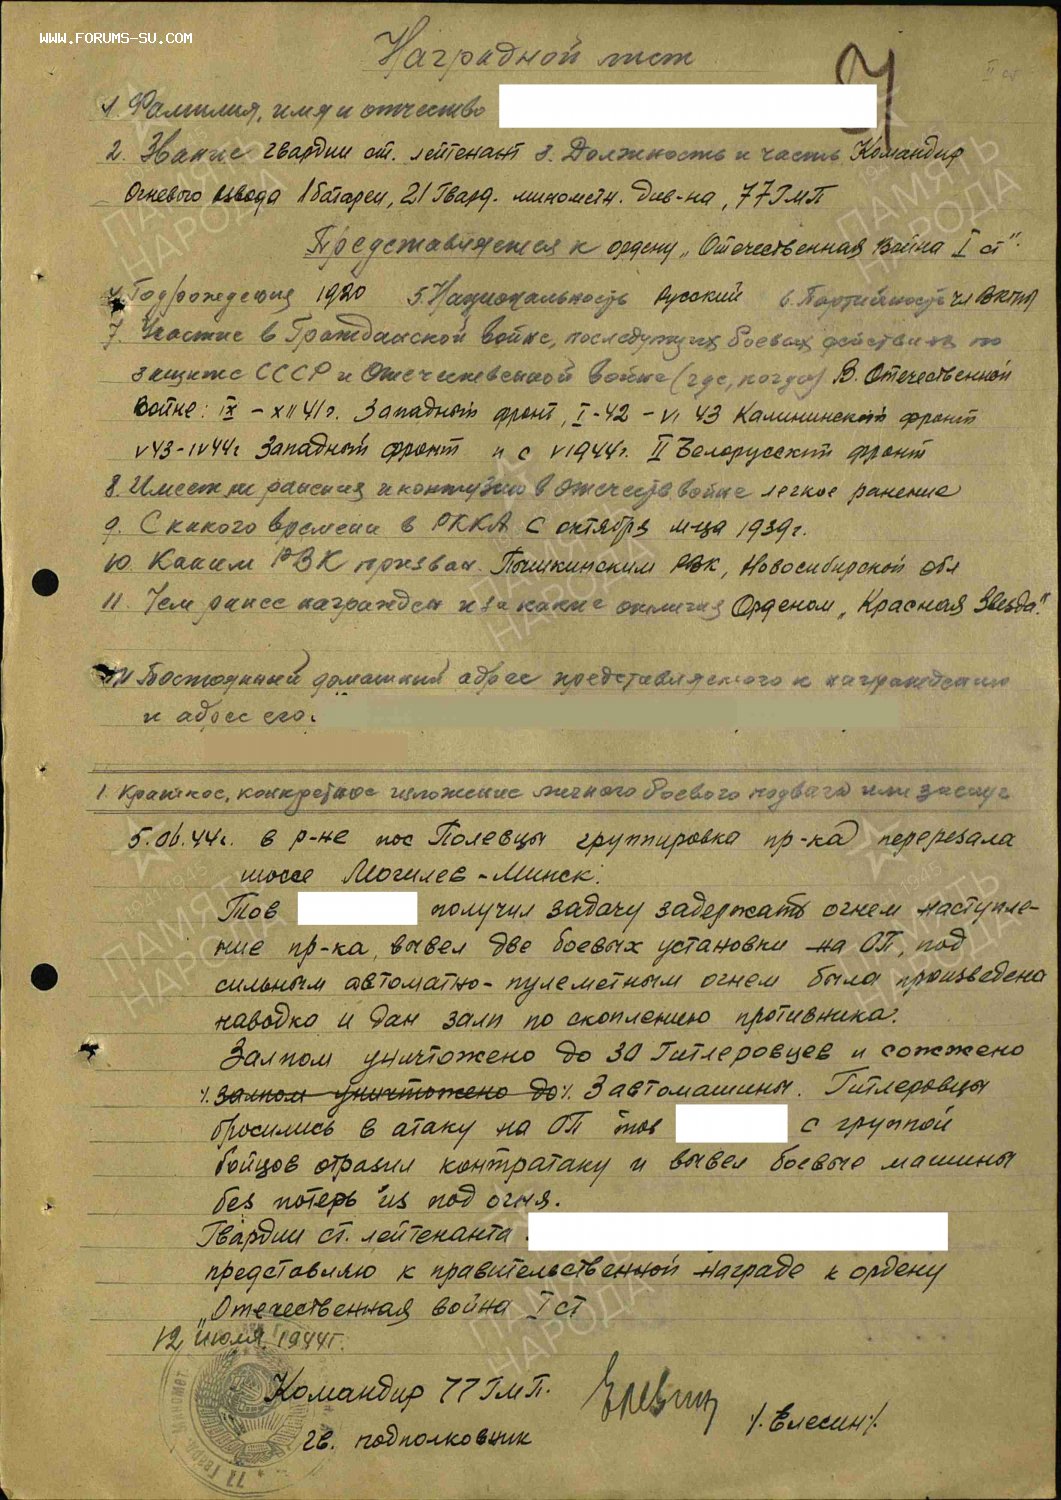 WWW.FORUMS-SU.COM
Наградной лист
1. Фамилия, имя и отчество
2. Звание гвардии ст. лейтенант 3. Должность и часть Командир
Огневого взвода 1 батареи, 21 Гвард. минометн. див-на, 77 ГМП
Представляется к ордену „Отечественная война I ст".
4. Год рождения 1920 5. Национальность русский 6. Партийность чл ВКП(б)
7. Участие в Гражданской войне, последующих боевых действиях по
защите СССР и Отечественной войне (где, когда) В. Отечественной
войне: IX - XII 41г. Западный фронт, I-42 - VI 43 Калининский фронт
V 43 - IV 44г. Западный фронт и с VI 1944г. II Белорусский фронт
8. Имеет ли ранения и контузии в отечеств войне легкое ранение
9. С какого времени в РККА С октября м-ца 1939г.
10. Каким РВК призван. Пышкинским РВК, Новосибирской обл
11. Чем ранее награжден и за какие отличия Орденом „Красная Звезда".
12 Постоянный домашний адрес представляемого к награждению
и адрес его:
1. Краткое, конкретное изложение личного боевого подвига или заслуг
5.06.44г. в р-не пос Полевцы группировка пр-ка перерезала
шоссе Могилев - Минск.
Тов получил задачу задержать огнем наступле-
ние пр-ка, вывел две боевых установки на ОП, под
сильным автоматно-пулеметным огнем была произведена
наводка и дан залп по скоплению противника.
Залпом уничтожено до 30 Гитлеровцев и сожжено
/. залпом уничтожено до /. 3 автомашины. Гитлеровцы
бросились в атаку на ОП тов с группой
бойцов отразил контратаку и вывел боевые машины
без потерь из под огня.
Гвардии ст. лейтенанта
представляю к правительственной награде к ордену
„Отечественная война I ст
12 июля 1944г.
Командир 77 ГМП.
гв. подполковник
/. Елесин /.
77 Гвард. Миномет
ПАМЯТЬ НАРОДА